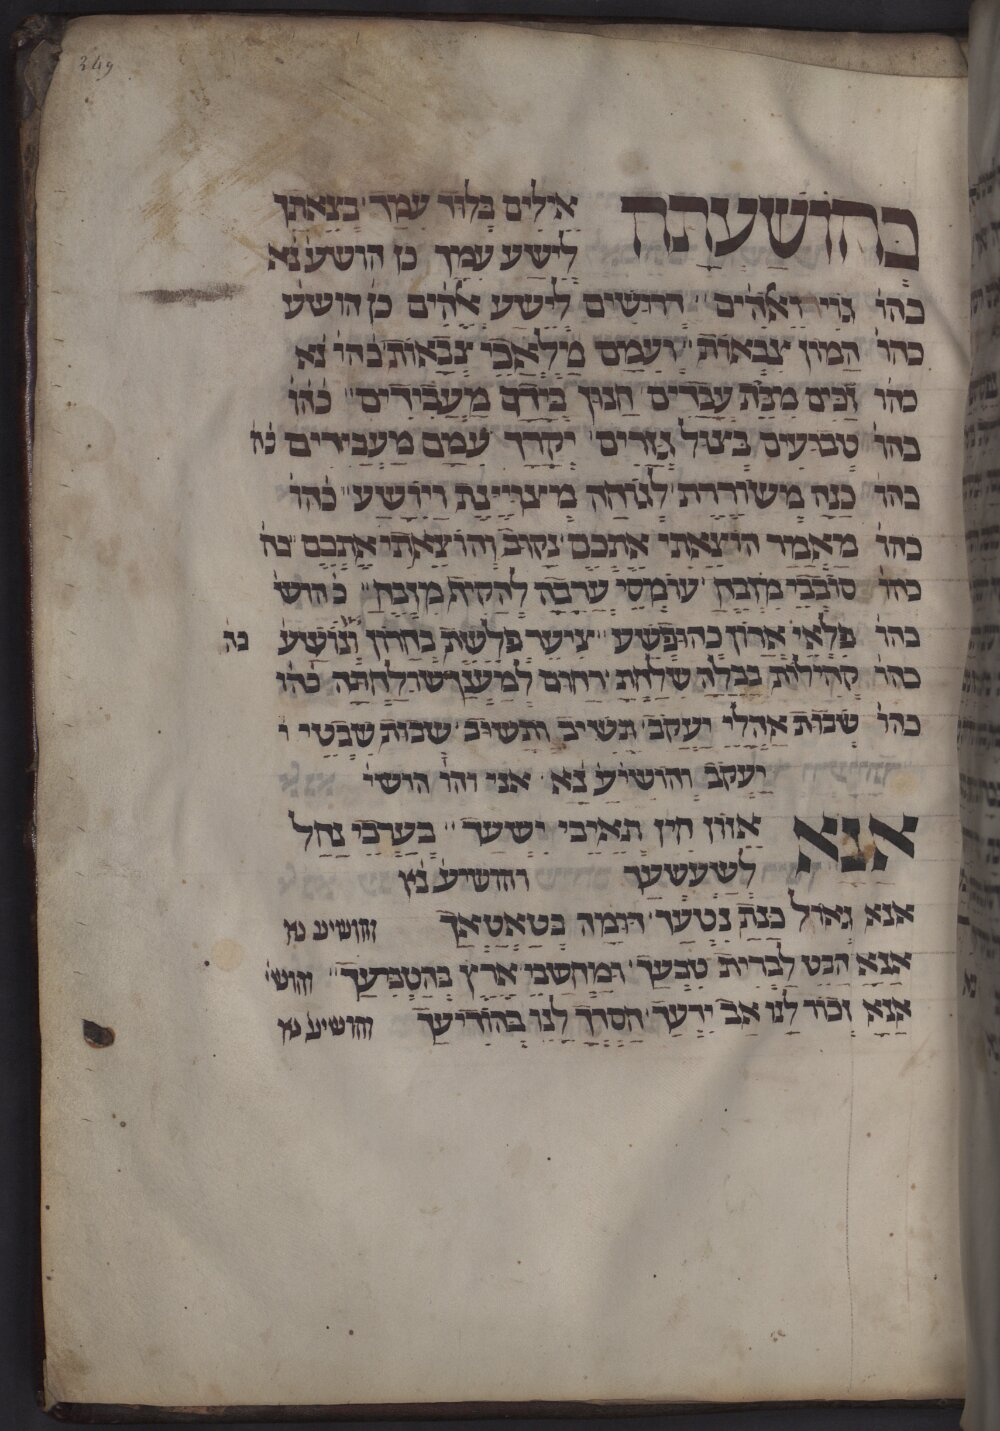 249
כהושעת אילים בלוד עמך בצאתך
לישע עמך כן הושע נא
כהו גוי ואלהים דרושים לישע אלהים כן הושע
כהו המון צבאות ועמם מלאכי צבאות כהו נא
כהו זכים מבית עבדים חנון בידם מעבידים כהו
כהו טבועים בצול גזרים יקרך עמם מעבירים כה
כהו כנה משוררת לגוחה מצויינת ויושע כהו
כהו מאמר הוצאתי אתכם נקוב והוצאתי אתכם כה
כהו סובבי מזבח עומסי ערבה להקית מזבח כהוש
כהו פלאי ארון כהופשע ציער פלשת בחרון ונושע כה
כהו קהילות בבלה שלחת רחום למענך שולחתה כהו
כהו שבות אהלי יעקב תשיב ותשוב שבות שבטי י
יעקב והושיע נא אני והו הושי
אנא אזון חין תאיבי ישעך בערבי נחל
לשעשעך והושיע נא
אנא גאול כנת נטעך דומה בטאטאך והושיע נא
אנא הבט לברית טבעך ומחשכי ארץ בהטביעך והוש
אנא זכור לנו אב ידעך חסדך לנו בהודיעך והושיע נא